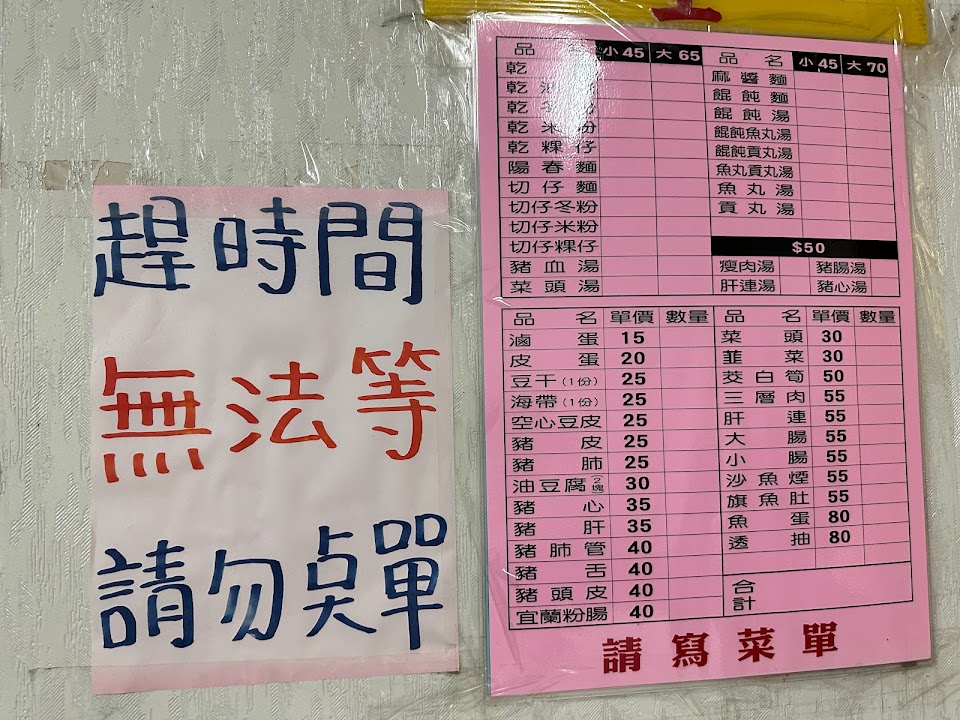 趕時間
無法等
請勿点單
品 小45 大65
乾
乾
乾
乾米粉
乾粿仔
陽春麵
切仔麵
切仔冬粉
切仔米粉
切仔粿仔
豬血湯
菜頭湯
品名 小45 大70
麻醬麵
餛飩麵
餛飩湯
餛飩魚丸湯
餛飩貢丸湯
魚丸貢丸湯
魚丸湯
貢丸湯
$50
瘦肉湯 豬腸湯
肝連湯 豬心湯
品名 單價 數量
滷蛋 15
皮蛋 20
豆干(1份) 25
海帶(1份) 25
空心豆皮 25
豬皮 25
豬肺 25
油豆腐(2塊) 30
豬心 35
豬肝 35
豬肺管 40
豬舌 40
豬頭皮 40
宜蘭粉腸 40
品名 單價 數量
菜頭 30
韮菜 30
茭白筍 50
三層肉 55
肝連 55
大腸 55
小腸 55
沙魚煙 55
旗魚肚 55
魚蛋 80
透抽 80
合計
請寫菜單